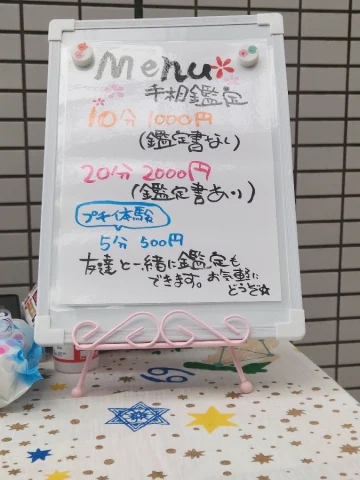 Menu
手相鑑定
10分 1000円
(鑑定書なし)
20分 2000円
(鑑定書あり)
プチ体験
5分 500円
友達と一緒に鑑定も
できます。お気軽に
どうぞ☆